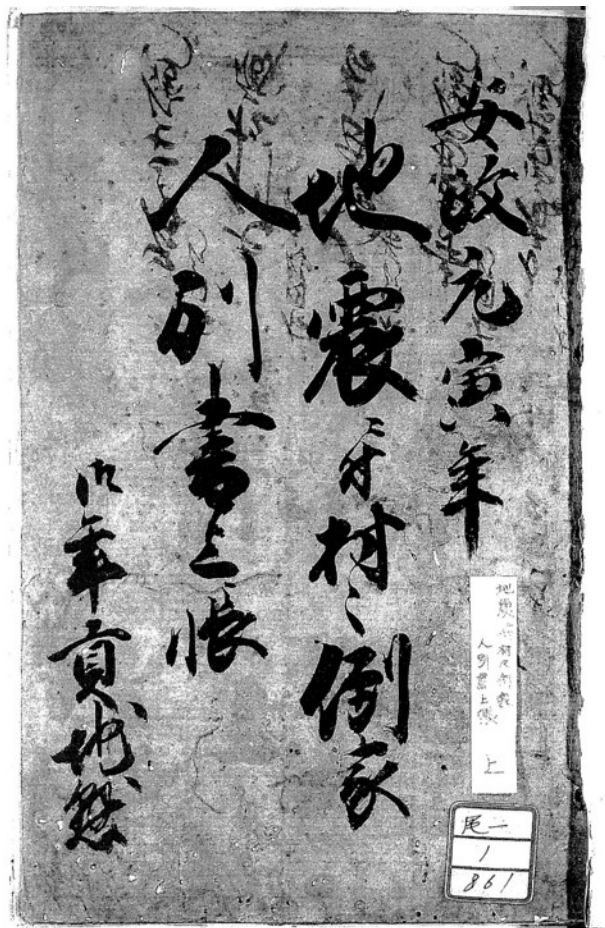 安政元寅年
地震ニ付村々倒家
人別書上帳
御年貢地
地震ニ付村々倒家
人別書上帳
上
尾一
1
861